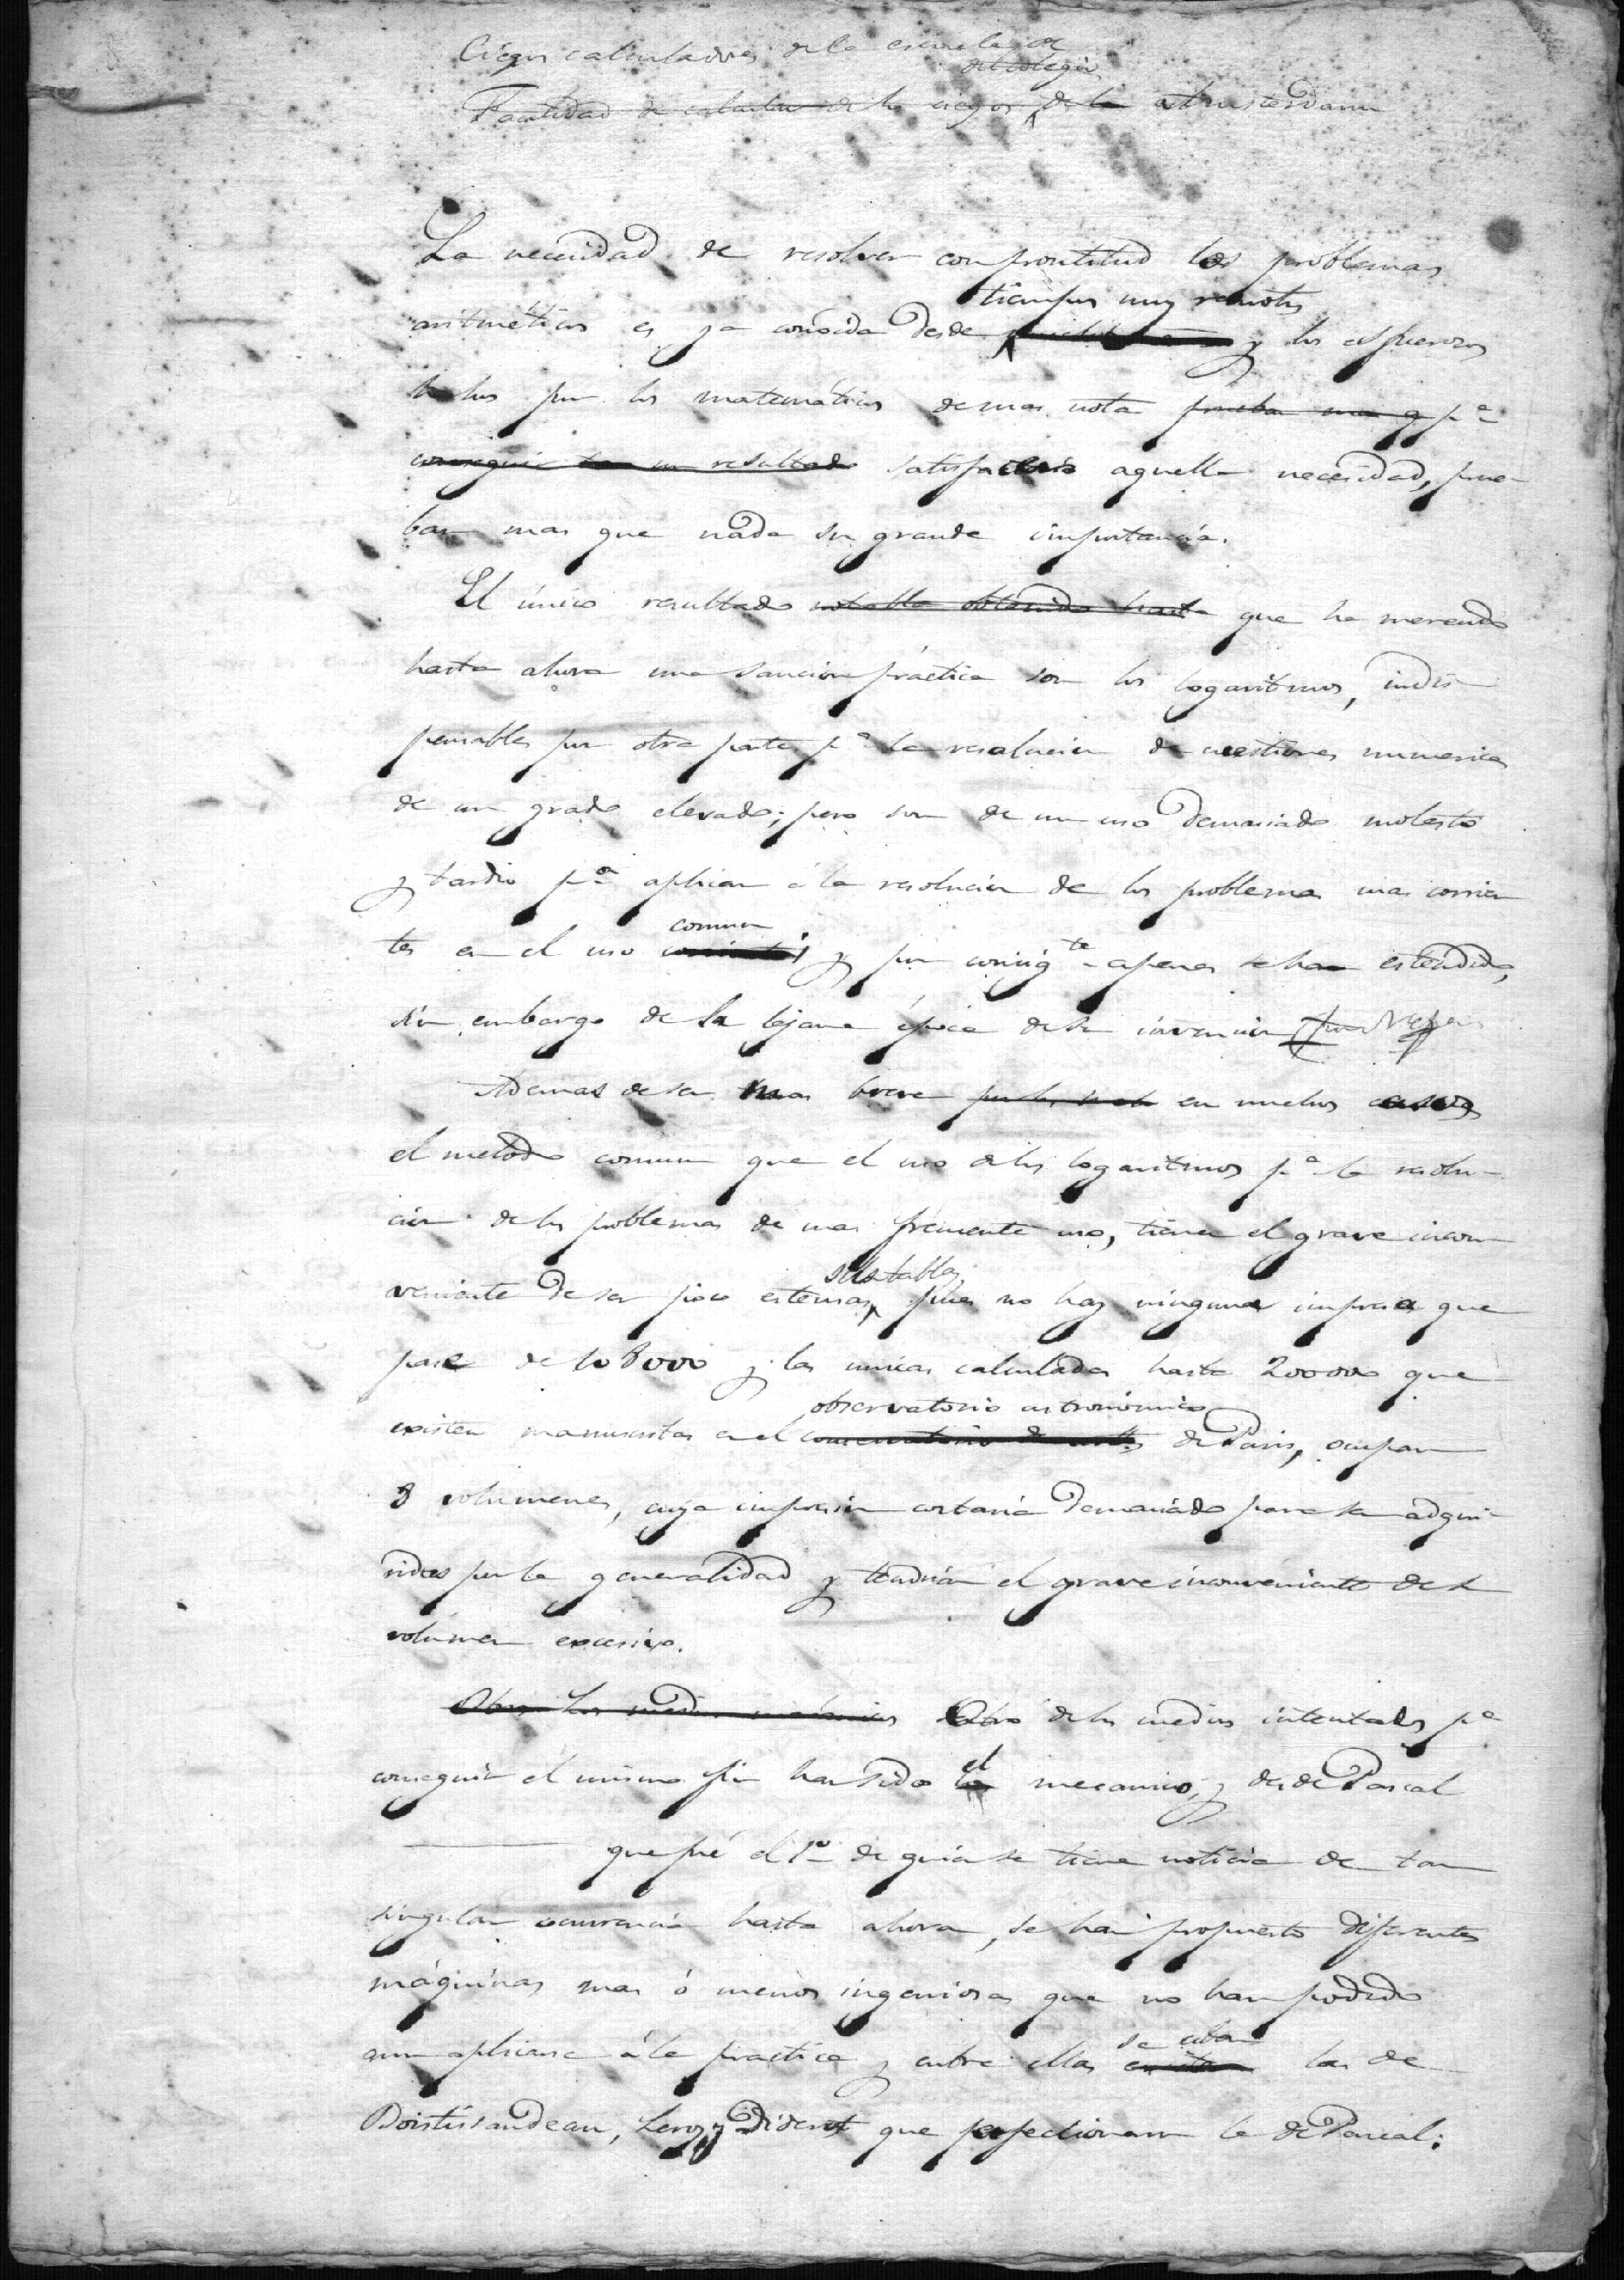 Ciegos calculadores de la escuela de
del colegio
Facilidad de calcular de los ciegos de la Amsterdam
La necesidad de resolver con prontitud los problemas
tiempos muy remotos
aritméticos es ya conocida desde y los esfuerzos
hechos por los matemáticos de mas nota prueba mas q pa
conseguir tan un resultado satisfacer aquella necesidad, prue-
ban mas que nada su grande importancia.
El único resultado notable obtenido hasta que ha merecido
hasta ahora una sancion práctica son los logaritmos, indis-
pensables por otra parte pa la resolucion de cuestiones numericas
de un grado elevado; pero son de un uso demasiado molesto
y tardio pa aplicar á la resolucion de los problemas mas corrien
comun
tes en el uso y por consigte apenas se han estendido,
sin embargo de la lejana época de su invencion (por Neper
Ademas de ser mas breve en muchos casos
el metodo comun que el uso de los logaritmos pa la resolu-
cion de los problemas de mas frecuente uso, tienen el grave incon-
sus tablas
veniente de ser poco estensas, pues no hay ninguna impresa que
pase de 108000 y las unicas calculadas hasta 200000 que
observatorio astronómico
existen manuscritas en el conservatorio de artes de Paris, ocupan
8 volumenes, cuya impresion costaria demasiado para ser adqui-
ridas por la generalidad y tendrian el grave inconveniente de su
volúmen excesivo.
Otro de los medios intentados pa
el
conseguir el mismo fin han sido los mecanico, y desde Pascal
que fué el 1o de quien se tiene noticia de tan
singular ocurrencia hasta ahora, se han propuesto diferentes
máquinas mas ó menos ingeniosas que no han podido
se citan
aun aplicarse á la practica y entre ellas las de
Boistissandeau, Leroy y Diderot que perfeccionaron la de Pascal: